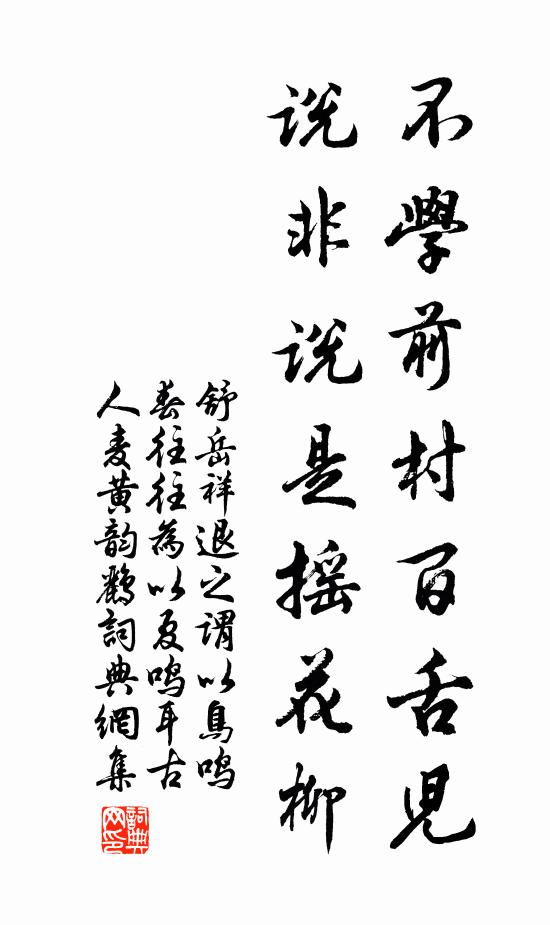 不學前村百舌児
说非说是摇花柳
舒岳祥退之谓以鳥鸣
春往往為以夏鸣耳古
人麦黄韵鹂詞典網集
詞典
网印